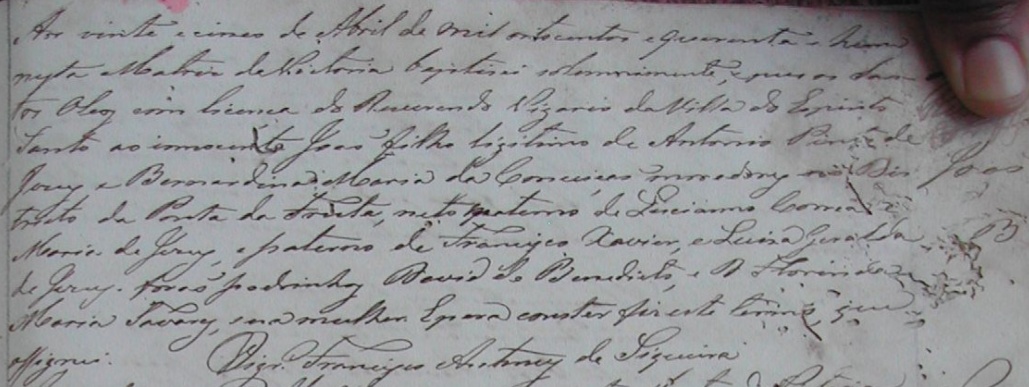 Aos vinte e cinco de Abril de mil oitocentos e quarenta e hum
nesta Matriz da Victoria baptisei solemnimente, e pus os San-
tos Oleos com licença do Reverendo Vigario da Villa do Espirito
Santo ao innocente João filho ligitimo de Antonio Pinto de
Jesus e Bernardina Maria da Conceição moradores no Dis
João
tricto da Ponta da Fruita, neto paterno de Luciano Correa
Maria de Jesus, e paterno de Francisco Xavier, e Luisa Geralda
B
de Jesus. forão padrinhos David de Benedicto, e D Florinda
Maria Tavares, sua mulher E para constar fiz este termo, que
assignei.
Vigr.º Francisco Antones de Siqueira